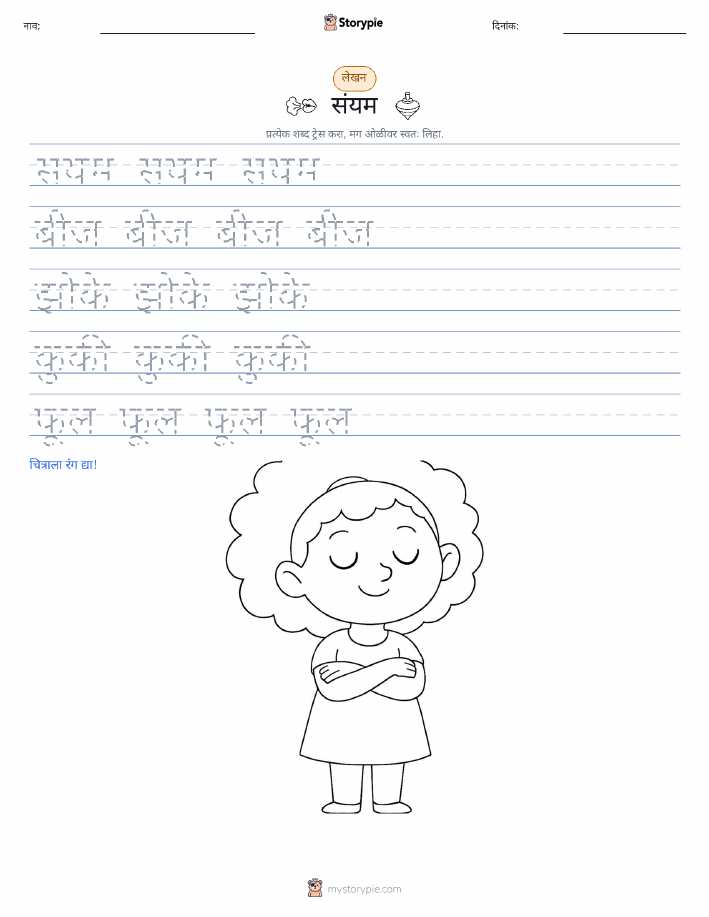 नाव: Storypie दिनांक:
लेखन
संयम
प्रत्येक शब्द ट्रेस करा, मग ओळीवर स्वतः लिहा.
सयम सयम सयम
बीज बीज बीज बीज
झोके झोके झोके
कुकी कुकी कुकी
फूल फूल फूल फूल
चित्राला रंग द्या!
mystorypie.com